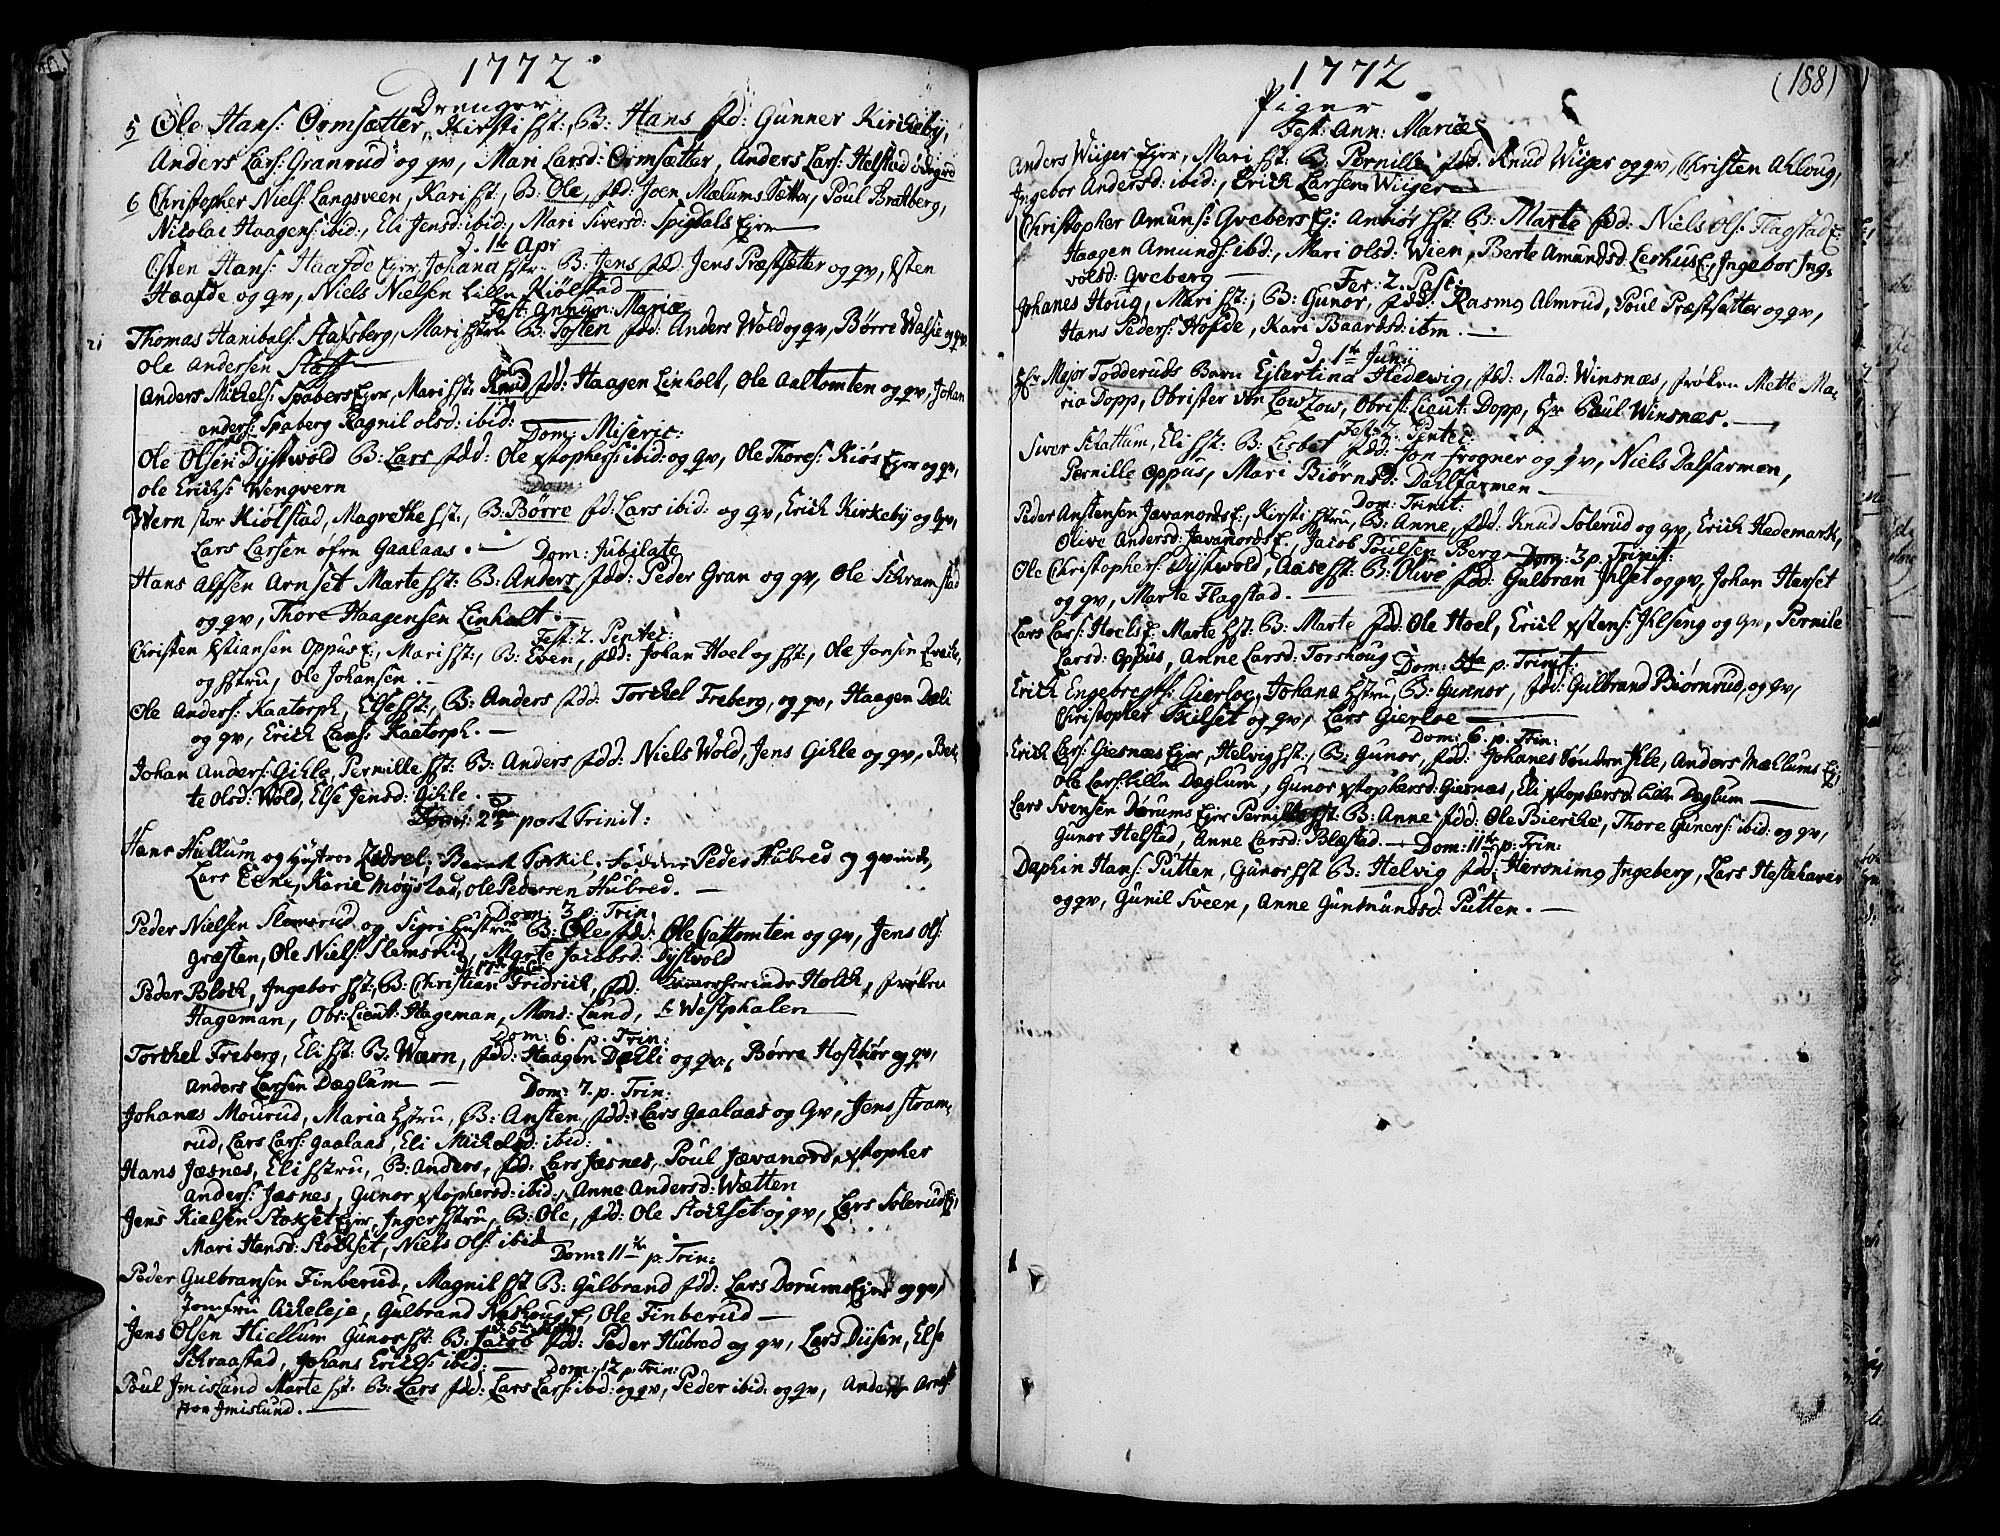 1772
Drenger
5 Ole Hans: Ormsætter, Kirsti hst:, B: Hans fdd: Gunner Kirckeby,
Anders Lars: Granrud og qv, Mari Larsd: Ormsætter, Anders Lars: Helstad ødegrd
6 Christopher Niels: Langsveen, Kari hst:, B: Ole, fdd: Joen Mælums Sætter, Poul Bratberg,
Nicolai Haagens: ibid:, Eli Jensd: ibid:, Mari Siversd: Spigdals Ejer
d. 1te Apr
Østen Hans: Haafde Ejer, Johana hstr: B: Jens fdd: Jens Præstsætter og qv, Østen
Haafde og qv, Niels Nielsen Lille Kiølstad
Fest: Annun: Mariæ
21 Thomas Hanibals: Stafsberg, Mari hstru B: Tosten fdd: Anders Wold og qv, Børre Walsie og qv
Ole Andersen Staff
Anders Mickels: Spabergs Ejer, Mari hst: Knud fdd: Haagen Linholt, Ole Aaltomten og qv, Johan
anders: Spaberg Ragnil olsd: ibid:
Dom: Miseric:
Ole Olsen Dystwold B: Lars fdd: Ole xstophers: ibid: og qv, Ole Thores: Kiøs Ejer og qv,
Ole Erichs: Wengvern
Wern stor Kiølstad, Magrethe hst:, B: Børre fd: Lars ibid: og qv, Erich Kirkeby og qv,
Lars Larsen øfre Gaalaas.
Dom: Jubilate
Hans Alfsen Arnset Marte hst: B: Anders fdd: Peder Gran og qv, Ole Schramstad
og qv, Thore Haagensen Linholt.
Fest: 2. Pentec:
Christen xstiansen Oppus E:, Mari hst:, B: Even, fdd: Johan Hoel og hst:, Ole Jonsen
og hstru, Ole Johansen.
Ole Anders: Kaatorph, Else hst:, B: Anders fdd: Torchel Freberg, og qv, Haagen Dæli
og qv, Erich Lars: Kaatorph.
Johan Anders: Gihle, Pernille hst: B: Anders fdd: Niels Wold, Jens Gihle og qv, Ber:
te Olsd: Wold, Else Jensd: Gihle.
Dom: 2 post Trinit:
Hans Hallum og Hustroe Zidsel, Barnet Torkil, Faddere Peder Hubred og qvinde,
Lars Eeni, Karie Møystad, Ole Pedersen Hubred.
Dom: 3. p. Trin:
Peder Nielsen Slemsrud og Sigri hustru B: Ole fdd: Ole Aattomten og qv, Jens Ols:
græsten, Ole Niels: Slemsrud, Marte Jacobsd: Dystvold
d. 17de Julii
Peder Block, Ingebor hst:, B: Christian Fridrich, fdd: Holck, frøken
Hageman, Obr: Lieut: Hageman, Mons: Lund, Westphalen
Dom: 6. p. Trin:
Torchel Freberg, Eli hst: B: Wærn, fdd: Haagen Dælli og qv, Børre Hostbior og qv,
Anders Larsen Dæglum
Dom: 7. p. Trin:
Johanes Mourud, Maria hstru, B: Ansten, fdd: Lars Gaalaas og qv, Jens Stram:
rud, Lars Lars: Gaalaas, Eli Mickelsd: ibid:
Hans Jæsnes, Eli hstru, B: Anders, fdd: Lars Jæsnes, Poul Jævanord, xstopher
Anders: Jæsnes, Gunor xstophersd: ibid:, Anne Andersd: Wætten
Jens Kielsen Stokset Ejer, Inger hstru, B: Ole, fdd: Ole Stockset og qv, Lars Solerud Ej,
Mari Hansd: Stockset, Niels Ols: ibid
Dom: 11te p. Trin:
Peder Gulbransen Finberud, Magnil hst B: Gulbrand fdd: Lars Dorums Ejer og qv,
Jomfru Ackeleje, Gulbrand Næshoug E, Ole Finberud
Jens Olsen Hiellum Gunor hst: B: Jacob fdd: Peder Hubred og qv, Lars Diisen, Else
Schraastad, Johans Erichs: ibid:
Dom: 12 p. Trin:
Poul Imislund Marte hst: B: Lars fdd: Lars Lars: ibid: og qv, Peder ibid: og qv, Anders
Imislund.
1772
(188)
Piger
Fest: Ann: Mariæ
Anders Wiiger Ejer, Mari hst: B: Pernille fdd: Knud Wiiger og qv, Christen Ahloug,
Ingebor Andersd: ibid:, Erich Larsen Wiiger
Christopher Amuns: Qvebergs Ej: Annøs hst: B: Marte fdd: Niels Ols: Flagstad E:
Haagen Amunds: ibd:, Mari Olsd: Wien, Berte Amundsd: Lerhus E:, Ingebor Ing:
volsd: Qveberg
Fer: 2. Pasc:
Johanes Houg, Mari hst:, B: Gunor, fdd: Rasmus Almrud, Poul Præstsætter og qv,
Hans Peders: Hofde, Kari Baardsd: ibm.
d. 1te Junii
Hr Major Todderuds Barn Ejlertina Hedewig, fdd: Mad: Winsnæs, frøken Mette Ma:
ria Dopp, Obrister von Lowzow, Obrist: Lieut: Dopp, Hr Poul Winsnæs.
Fest: 2. Pintec:
Siver Schattum, Eli hst: B: Lisbet fdd: Jon frogner og qv, Niels Dalfarmen,
Pernille Oppus, Mari Biørnsd: Dahlfarmen
Dom: Trinit:
Peder Anstensen Javanords E:, Kirsti hstru, B: Anne, fdd: Knud Solerud og qv, Erich Hedemark,
Olive Andersd: Javanords E, Jacob Poulsen Berg
Dom: 3 p. Trinit:
Ole Christophers: Dystwold, Aase hst: B: Olive fdd: Gulbran Jhlset og qv, Johan Harset
og qv, Marte Flagstad.
Lars Lars: Hoels E: Marte hst: B: Marte fdd: Ole Hoel, Erich xstens: Jhlseng og qv, Pernille
Larsd: Oppus, Anne Larsd: Torshoug
Dom: 5ta p. Trinit:
Erich Engebregts: Gierloe, Johana hstru, B: Gunnor, fdd: Gulbrand Biørnrud, og qv,
Christopher Skilset og qv, Lars Gierloe
Dom: 6. p. Trin:
Erich Lars: Giesnæs Ejer, Helvig hst:, B: Gunor, fdd: Johanes Søndre Jhle, Anders Mæhlums Ej,
Ole Lars: Lille Dæglum, Gunor xstophersd: Giesnæs, Eli xstophersd: Lille Dæglum
Lars Svensen Dørums Ejer Pernille hst B: Anne fdd: Ole Biercke, Thore Guners: ibid: og qv,
Gunor Helstad, Anne Larsd: Blæstad.
Dom: 11te p. Trin:
Daphin Hans: Putten, Gunor hst B: Helvig fdd: Hieronimus Ingeberg, Lars Hestehaver
og qv, Gunil Sveen, Anne Gundmundsd: Putten.